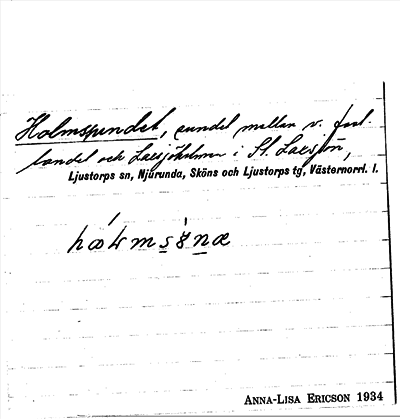 Holmsundet, sundet mellan v. fast-
landet och Laxsjöholmen i St. Laxsjön,
Ljustorps sn, Njurunda, Sköns och Ljustorps tg, Västernorrl. l.
ANNA-LISA ERICSON 1934